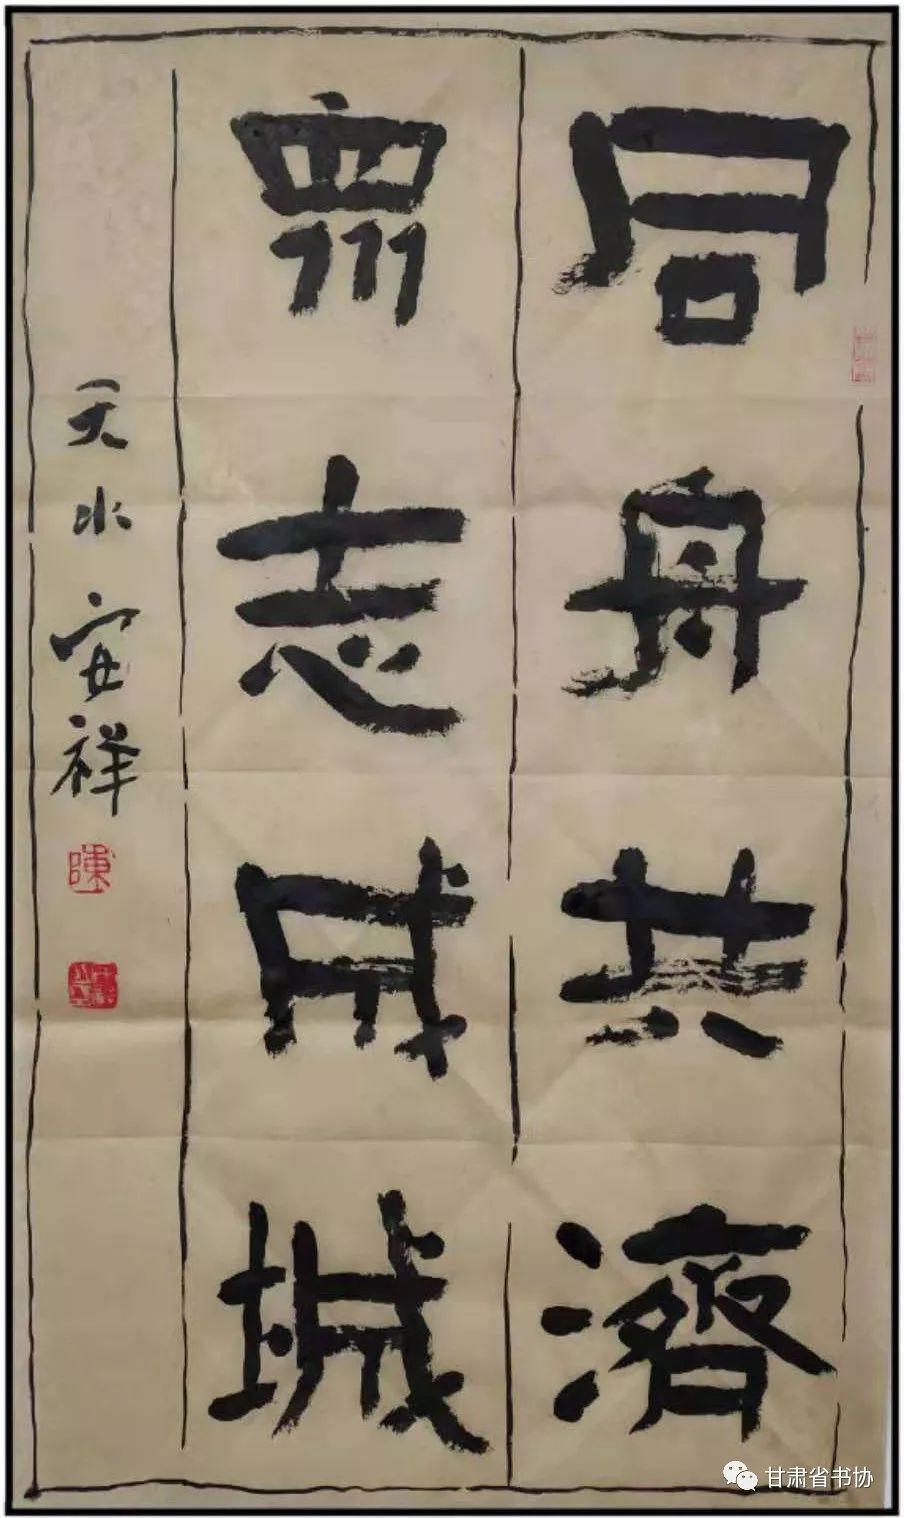 同舟共濟
眾志成城
天水安祥
陳
甘肃省书协